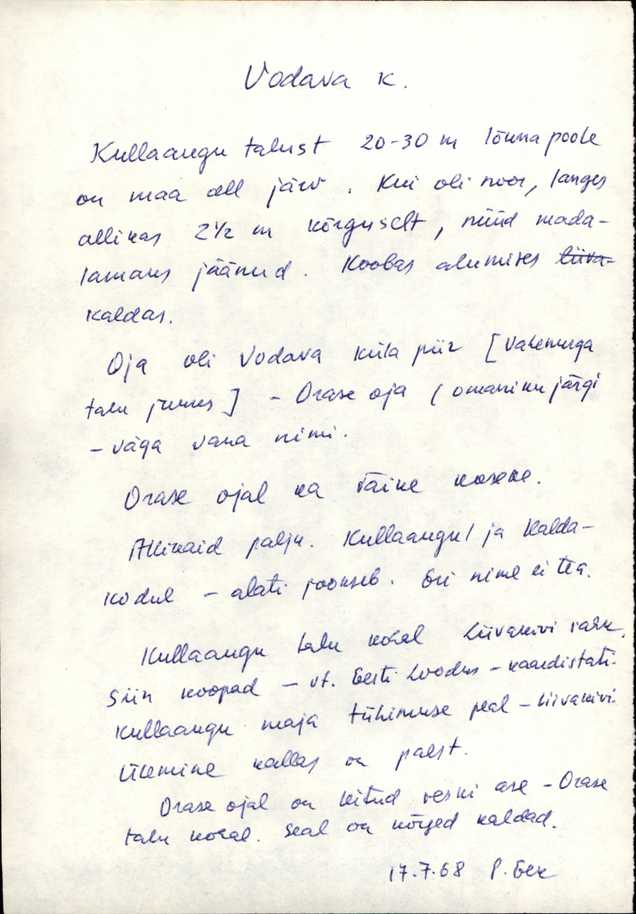 Vodava k.
Kullaaugu talust 20-30 m lõuna poole
on maa all järv. Kui oli noor, langes
allikas 2½ m kõrguselt, nüüd mada-
lamaks jäänud. Koobas alumises liiva-
kaldas.
Oja oli Vodava küla piir [Vahenurga
talu juures] - Orase oja (omaniku järgi
- väga vana nimi.
Orase ojal ka väike kosene.
Allikaid palju. Kullaaugul ja Kalda-
kodul - alati jookseb. Eri nime ei tea.
Kullaaugu talu kohal liivakivi
Siin koopad - vt. Eesti Loodus - kaardistati.
Kullaaugu maja tühimuse peal - liivakivi.
Ülemine kallas on paest.
Orase ojal on leitud veski ase - Orase
talu kohal. Seal on kõrged kaldad.
17.7.68 P.